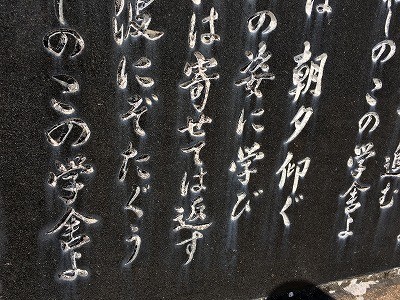 進む
しのこの学舎よ
は 朝夕仰ぐ
の姿に学び
は寄せては返す
波にぞたぐう
しのこの学舎よ